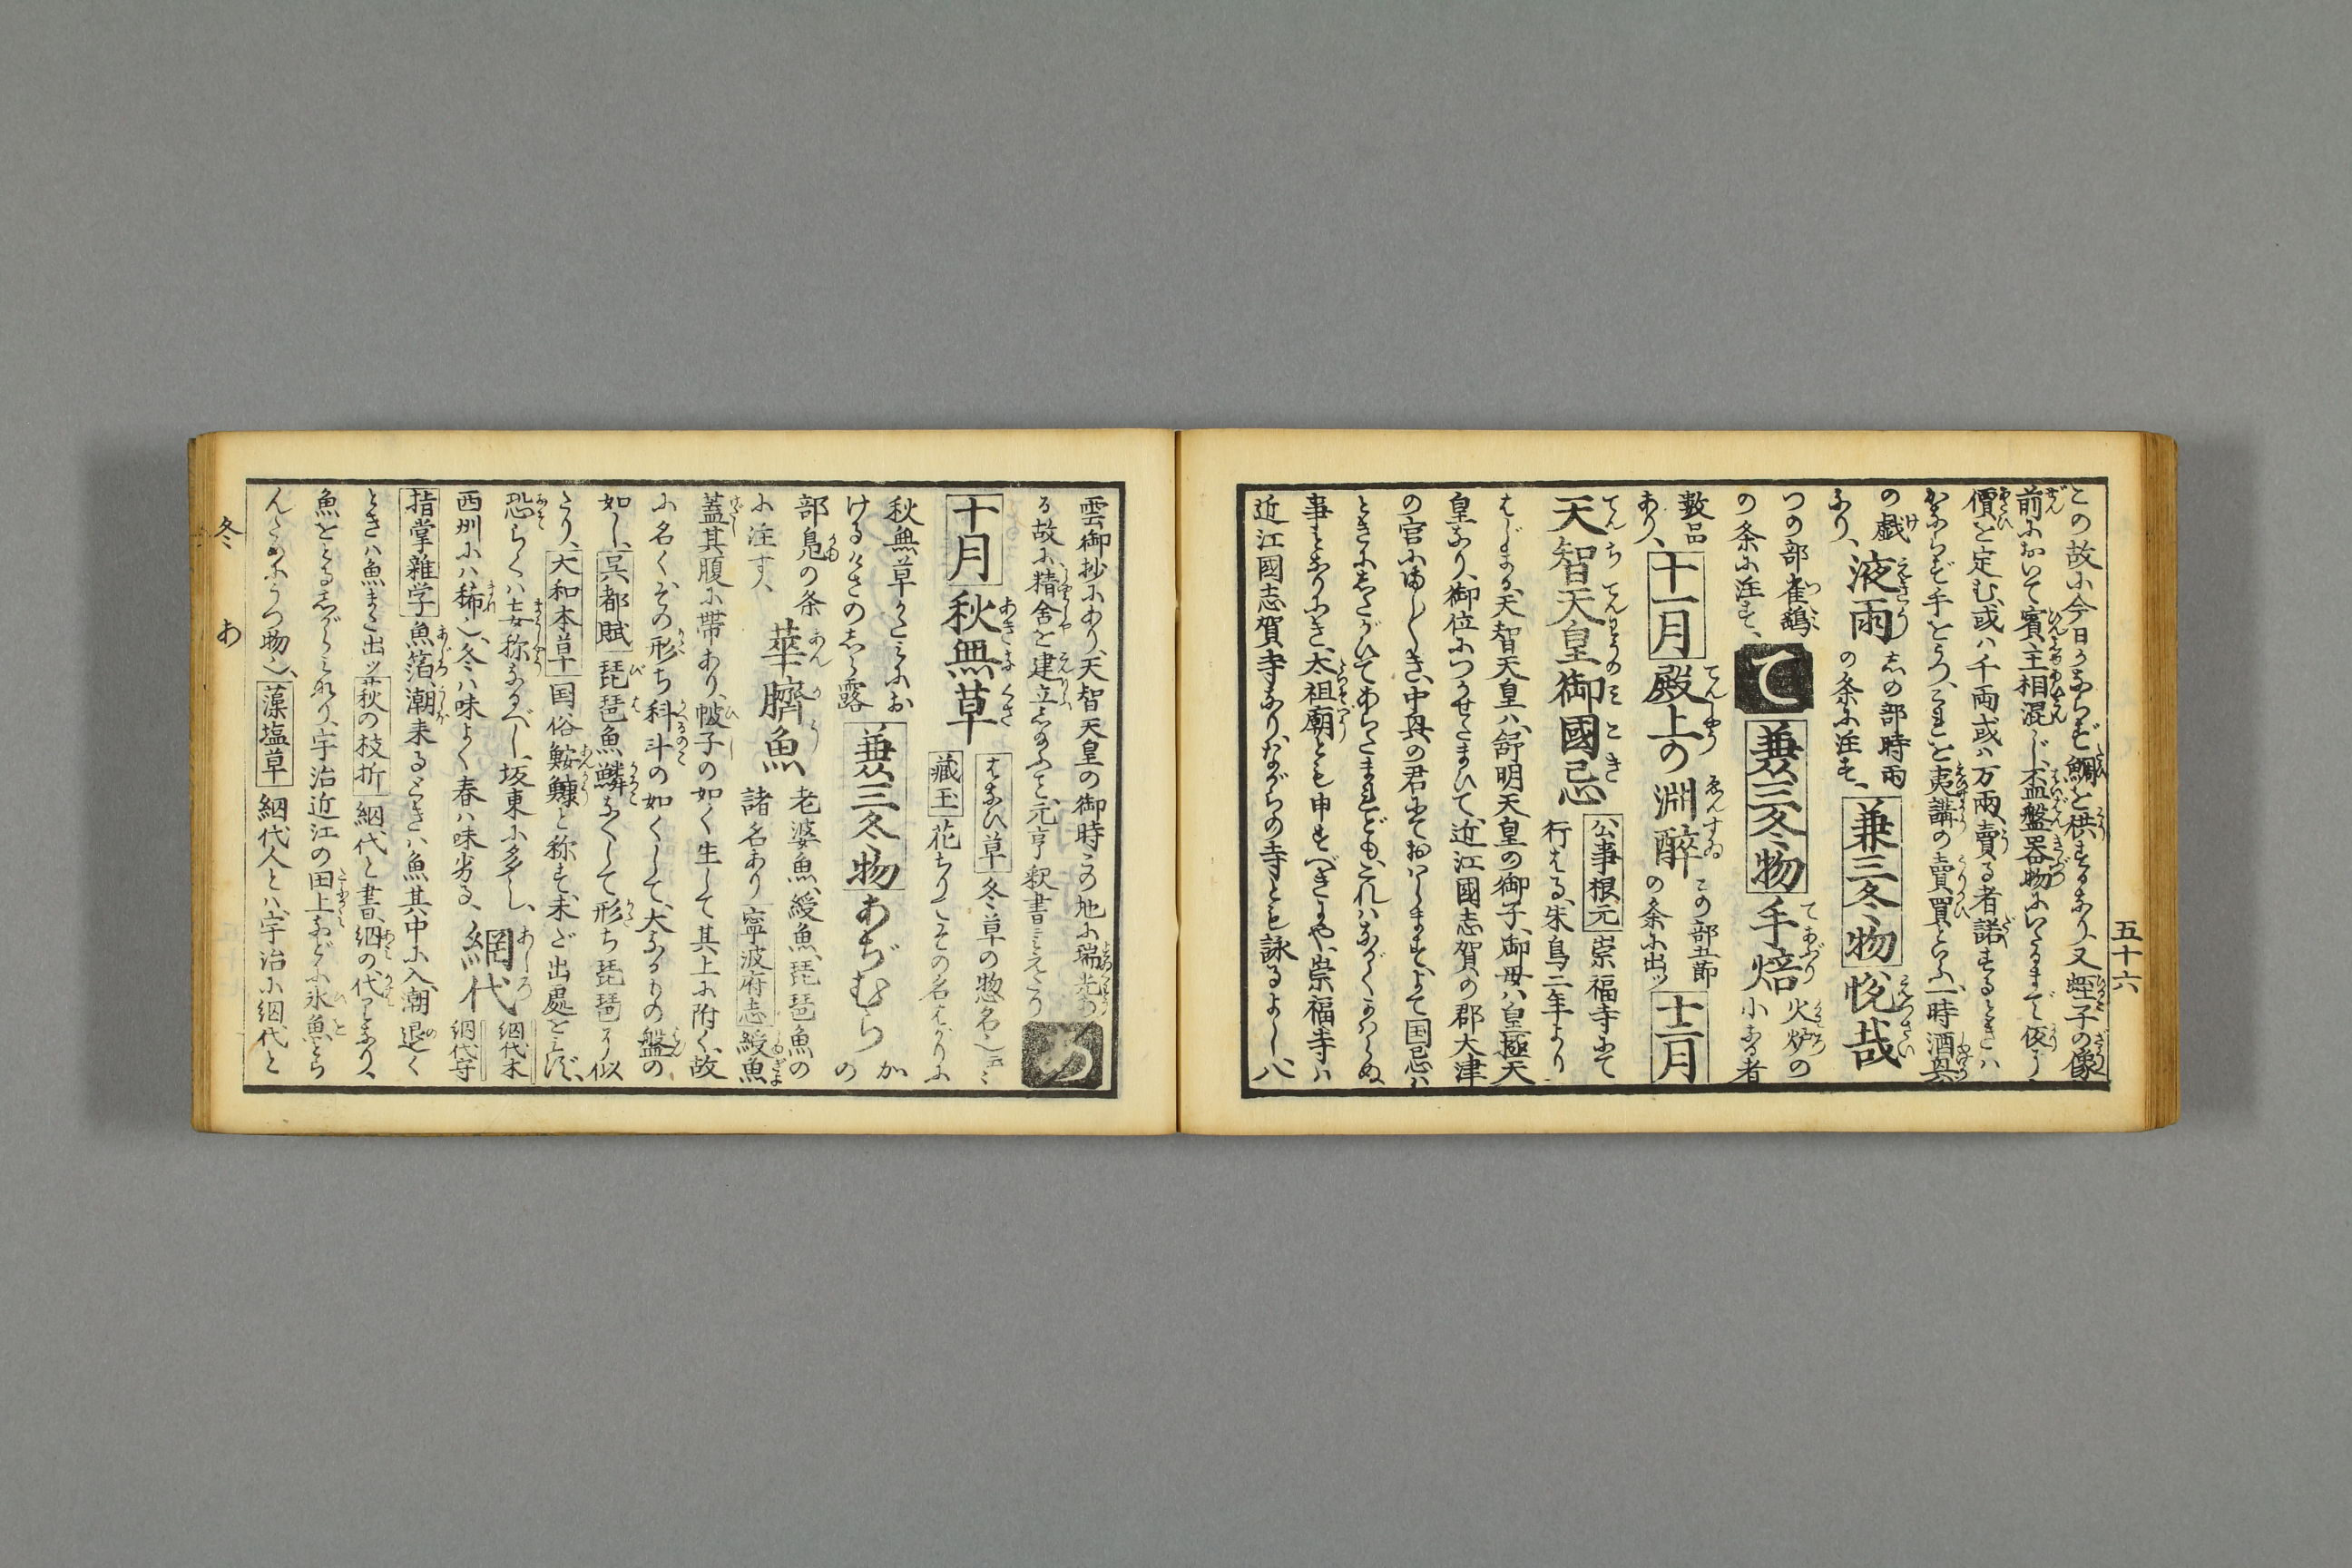 五十六
この故に今日かならず鯛を供するなり、又蛭子の像
前において賓主相混じ、盃盤器物にいたるまで仮に
價を定む、或ハ千両或ハ万両、賣る者諾するときハ
かならず手をうつ、これを夷講の賣買といふ、一時酒興
の戯
なり、
液雨
しの部時雨
の条に注す、
兼三冬物
悦哉
つの部雀鷂
の条に注す、
て
兼三冬物
手焙
火炉の
小なる者
數品
あり、
十一月
殿上の淵醉
この部五節
の条に出ッ
十二月
天智天皇御國忌
公事根元
崇福寺にて
行はる、朱鳥二年より
はじまる、天智天皇ハ舒明天皇の御子、御母ハ皇極天
皇なり、御位につかせたまひて、近江國志賀の郡大津
の宮にましく〳〵き、中興の君にておハします、よて国忌ハ
ときにしたがひてあらたまれども、これハながくかハらぬ
事となりにき、太祖廟とも申すべきにや、崇福寺ハ
近江國志賀寺なり、ながらの寺とも詠るよし八
雲御抄にあり、天智天皇の御時この地に瑞光あ
る故に精舎を建立したまふこと、元亨釈書に見えたり
あ
十月
秋無草
はなひ草
冬草の惣名也
藏玉
花ちりてその名ばかりに
秋無草かたみにお
ける今さのしら露
兼三冬物
あぢむら
か
の
部鳧の条
に注す、
華臍魚
老婆魚、綬魚、琵琶魚の
諸名あり
寧波府志
綬魚
蓋其腹に帶あり、帔子の如く生して其上に附く、故
に名く、その形ち科斗の如くして、大なるもの盤の
如し、
呉都賦
琵琶魚鱗なくして形ち琵琶に似
たり、
大和本草
国俗鮟鱇と称す、未ど出處を見ず、
恐らくハ妄称なるべし、坂東に多し、
西州にハ稀也、冬ハ味よく春ハ味劣る、
網代
網代木
網代守
指掌雜学
魚箔、潮来るときハ魚其中に入、潮退く
ときハ魚また出ッ
秋の枝折
網代と書、網の代となり、
魚をとるしがらみなり、宇治近江の田上などに氷魚とら
んためにうつ物也、
藻塩草
網代人とハ、宇治に網代と
冬
あ